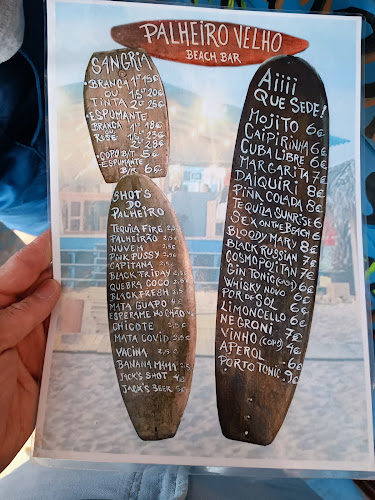 PALHEIRO VELHO
BEACH BAR
SANGRIA
• BRANCA 1L 15€
OU 1,5L 20€
TINTA 2L 25€
• ESPUMANTE
BRANCA 1L 18€
ROSÉ 2L 28€
• COPO B/T 5€
• ESPUMANTE
B/R 6€
SHOT'S
DO
PALHEIRO
TEQUILA FIRE
PALHEIRÃO 2,5€
NUVEM
PINK PUSSY 2,5€
CAPITANA 2,5€
BLACK FRIDAY 2,5€
QUEBRA COCO 2,5€
BLACK FRESH
MATA GUAPO 4€
ESPERAME NO CHÃO
CHICOTE
MATA COVID
VACINA 2,5€
BANANA MAMA
JACK'S SHOT 4€
JACK'S BEER 5€
Aiiii
QUE SEDE!
MOJITO 6€
CAIPIRINHA 6€
CUBA LIBRE 6€
MARGARITA 7€
DAIQUIRI 8€
PIÑA COLADA 8€
TEQUILA SUNRISE
SEX ON THE BEACH
BLOODY MARY 8€
BLACK RUSSIAN 7€
COSMOPOLITAN 7€
GIN TONIC
WHISKY NOVO 6€
POR DE SOL 6€
LIMONCELLO 6€
NEGRONI 7€
VINHO (COPO) 4€
APEROL 6€
PORTO TONIC 9€